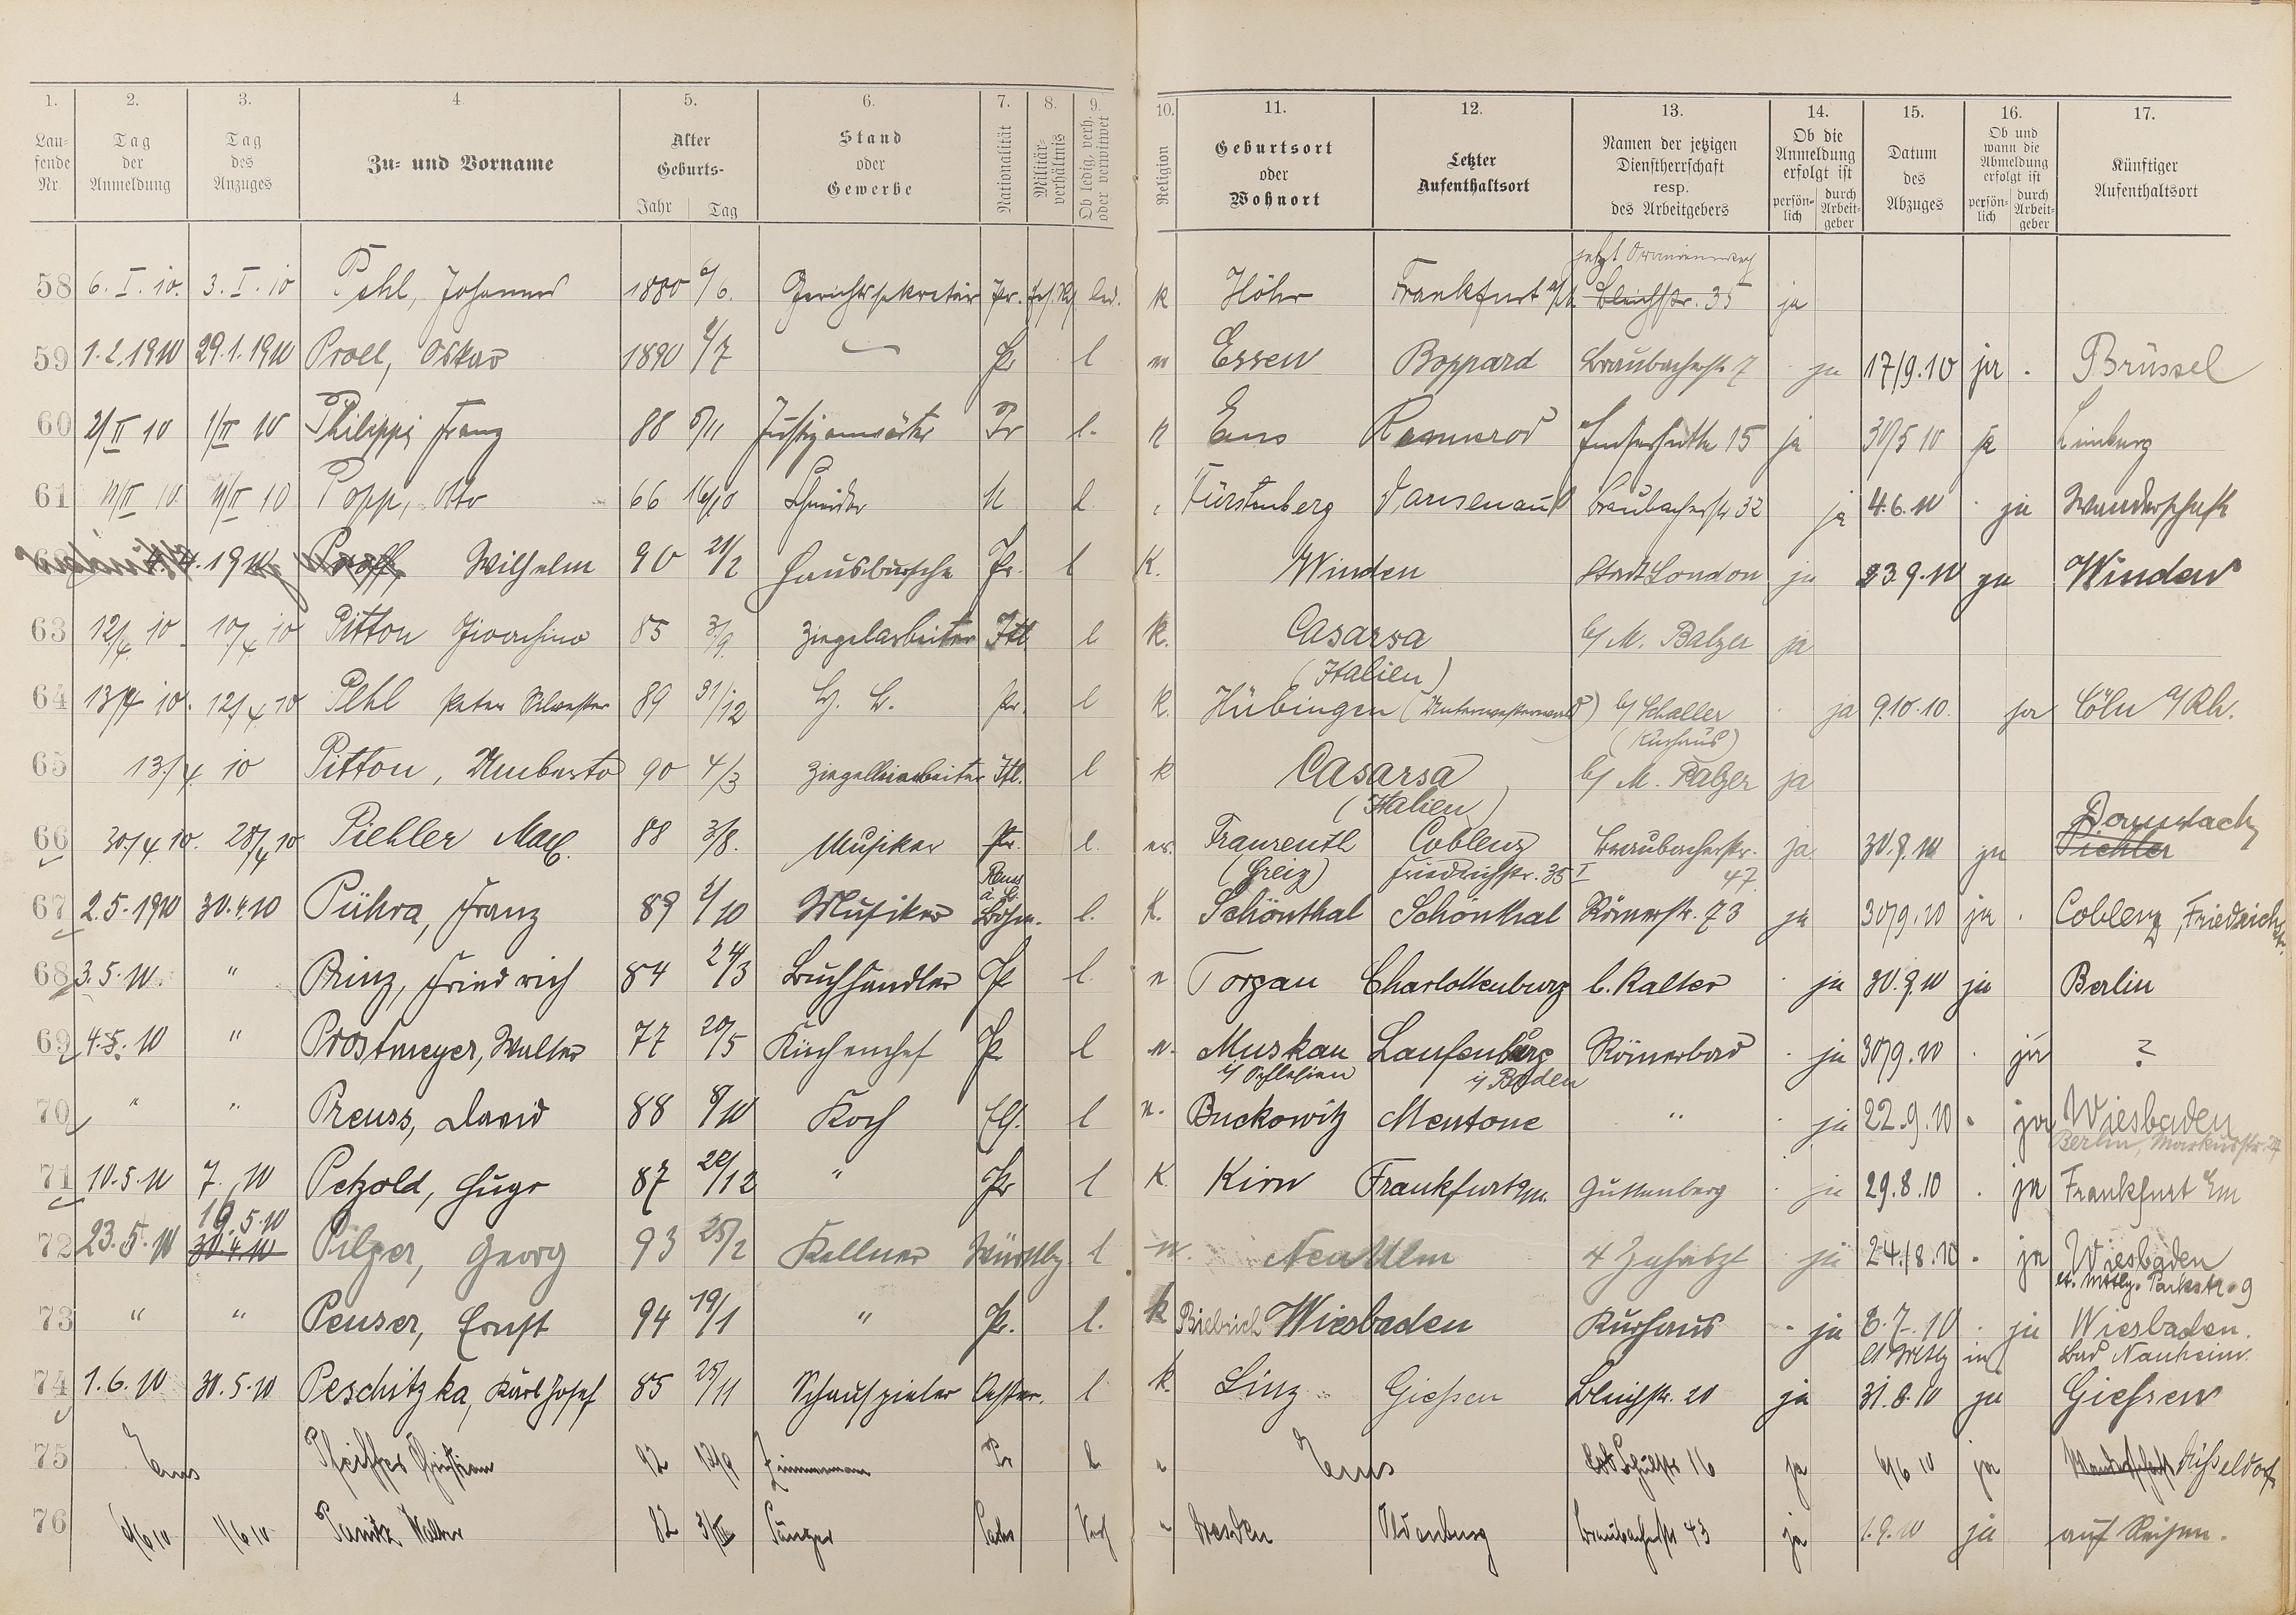 1. 2. 3. 4. 5. 6. 7. 8. 9. 10. 11. 12. 13. 14. 15. 16. 17.
Lau-
fende
Nr.
Tag
der
Anmeldung
Tag
des
Anzuges
Zu- und Vorname
Alter
Geburts-
Jahr Tag
Stand
oder
Gewerbe
Nationalität
Militär-
verhältnis
Ob ledig, verh.
oder verwitwet
Religion
Geburtsort
oder
Wohnort
Letzter
Aufenthaltsort
Namen der jetzigen
Dienstherrschaft
resp.
des Arbeitgebers
Ob die
Anmeldung
erfolgt ist
persön-
lich
durch
Arbeit-
geber
Datum
des
Abzuges
Ob und
wann die
Abmeldung
erfolgt ist
persön-
lich
durch
Arbeit-
geber
Künftiger
Aufenthaltsort
jetzt
58 6. I. 10. 3. I. 10 Pehl, Johannes 1880 6/6. Gerichtssekretär Pr. led. k Höhr Frankfurt a/M Bleichstr. 35 ja
59 1.2.1910 29.1.1910 Proll, Oskar 1890 2/7 — Pr l Essen Boppard Braubacherstr. 7 ja 17/9.10 ja Brüssel
60 2/II 10 1/II 10 Philippi Franz 88 5/11 Justizanwärter Pr l. k Ems Rennerod 15 ja 30/5 10 ja Limburg
61 Popp, Otto 66 16/10 Schneider l. Fürstenberg Braubacherstr. 32 ja 4.6.10 ja Wanderschaft
Wilhelm 90 21/2 Hausbursche Pr. l K. Winden Stadt London ja 23.9.10 ja Winden
63 12/4. 10 10/4 10 Pitton Gioachino 85 3/9. Ziegelarbeiter Itl l k. Casarsa b/ M. Balzer ja
(Italien)
64 13/4 10. 12/4 10 Pehl Peter Silvester 89 31/12 Pr. l k. Hübingen (Unterwesterwald) b/ Schaller ja 9.10.10. ja Cöln a/Rh.
(Kurhaus)
65 13/4. 10 Pitton, Umberto 90 4/3 Ziegelleiarbeiter Itl. l k Casarsa b/ M. Balzer ja
(Italien)
66 30/4 10. 28/4 10 Piehler Max. 88 3/8. Musiker Pr. l. ev. Fraureuth Coblenz Braubacherstr. ja 30.9.10 ja
(Greiz) Friedrichstr. 35 I 47.
67 2.5.1910 30.4.10 Pühra, Franz 89 2/10 Musiker Böhm. l. k. Schönthal Schönthal Römerstr. 73 ja 30/9.10 ja Coblenz, Friedrichstr.
68 3.5.10. " Prinz, Friedrich 84 24/3 Buchhändler Pr l. Torgau Charlottenburg b. Kalter ja 30.9.10 ja Berlin
69 4.5.10 " Prostmeyer, Walter 77 20/5 Küchenchef Pr l Muskau Laufenburg Römerbad ja 30/9.10 ja ?
i/ Schlesien i/ Baden
70 " " Preuss, David 88 8/10 Koch l Buckowitz Mentone " ja 22.9.10 ja Wiesbaden
Berlin, Markusstr.
71 10.5.10 7. 10 Petzold, Hugo 87 20/12 " Pr l K Kirn Frankfurt a/M. Guttenberg ja 29.8.10 ja Frankfurt a/m
19.5.10
72 23.5.10 30.4.10 Pilger, Georg 93 25/2 Kellner Württbg. l Neu Ulm 4 Jahrzt ja 24./8.10 ja Wiesbaden
Parkstr. 9
73 " " Peuser, Ernst 94 19/1 " Pr. l. k Biebrich Wiesbaden Kurhaus ja 8.7.10 ja Wiesbaden.
Bad Nauheim.
74 1.6.10 30.5.10 Peschitzka, Karl Josef 85 25/11 Schauspieler Oester. l k. Linz Giessen Bleichstr. 20 ja 31.8.10 ja Giessen
75 Ems Pfeiffer Christian 92 Zimmermann Pr l Ems Schulstr 16 ja ja Düsseldorf
76 1/6 10 Panitz Walter 82 Sänger Sachs Verh Dresden Oldenburg Braubacherstr 43 ja 1.9.10 ja auf Reisen.